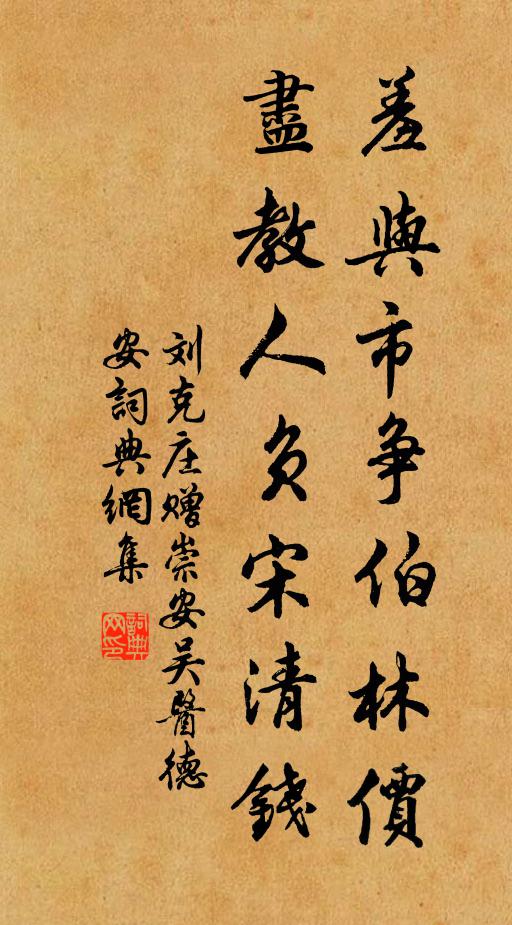 羞與市争伯林價
盡教人負宋清錢
刘克庄赠崇安吴醫德
安詞典網集
詞典网印